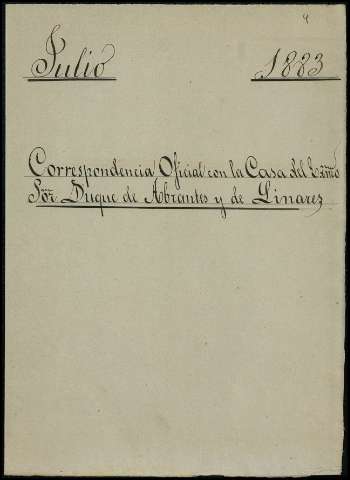 4
Julio 1883
Correspondencia Oficial con la Casa del Exmo
Sor. Duque de Abrantes y de Linares